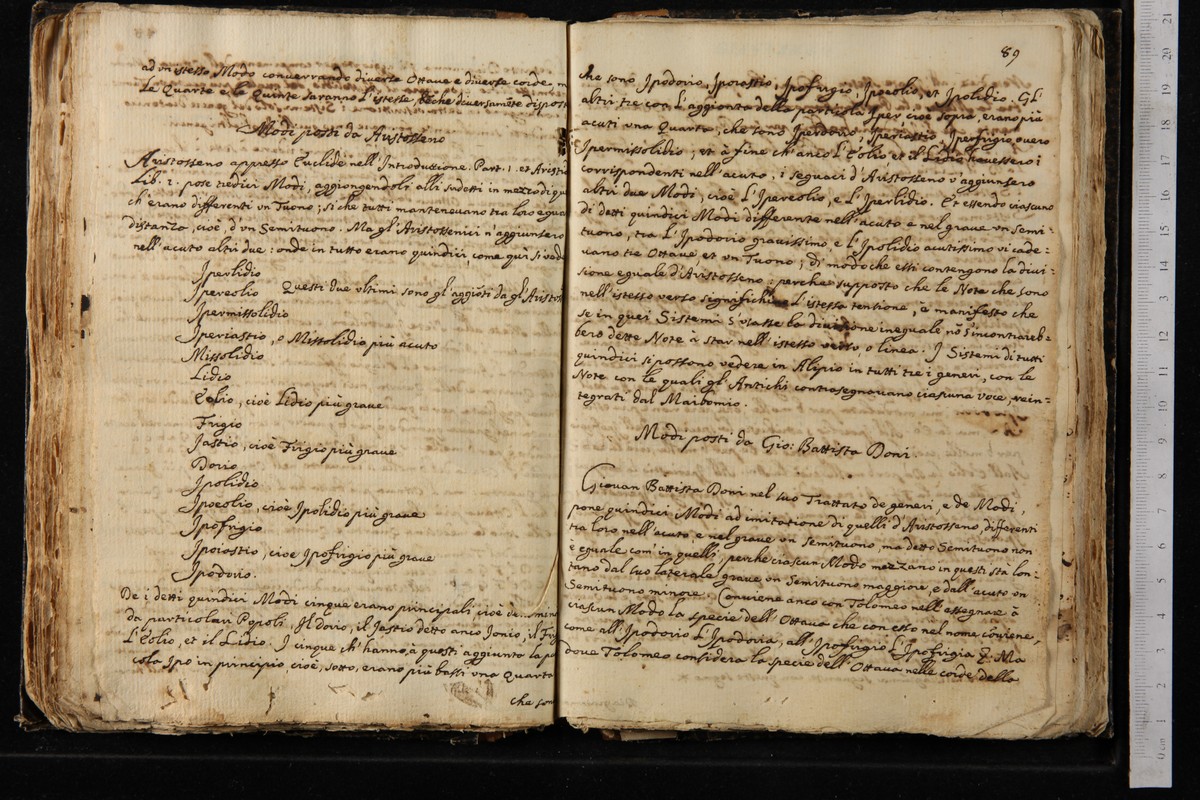 ad vn istesso Modo conuerrando diuerse Ottaue e diuerse corde,
Le Quarte e le Quinte saranno l'istesse, che diuersamẽte dispost
Modi posti da Aristosseno
Aristosseno appresso Euclide nell'Introduttione. Part. 1. et Aristid
Lib. 1. pose tredici Modi, aggiongendoli alli sudetti in mezzo di qu
ch'erano differenti vn Tuono; si che tutti manteneuano tra loro egua
distanza, cioè, d'vn Semituono. Ma gl'Aristossenici n'aggiunsero
nell'acuto altri due: onde in tutto erano quindici, come quì si ved
Iperlidio
Ipereolio Questi due vltimi sono gl'aggiũti da gl'Aristos
Ipermissolidio
Iperiastio, o Missolidio più acuto
Missolidio
Lidio
Eolio, cioè Lidio più graue
Frigio
Jastio, cioè Frigio più graue
Dorio
Ipolidio
Ipoeolio, cioè Ipolidio più graue
Ipofrigio
Ipoiastio, cioe Ipofrigio più graue
Ipodorio.
De i detti quindici Modi cinque erano principali cioè
da particolari Popoli. Il Dorio, il Jastio detto anco Jonio, il Fri
L'Eolio, et il Lidio. I cinque ch'hanno à questi aggiunto la pa
cola Ipo in principio cioè, sotto, erano più bassi vna Quarta
che son
89
che sono Ipodorio, Ipoiastio, Ipofrigio, Ipoeolio, et Ipolidio. Gl'
altri tre con l'aggionta della particola Iper cioè sopra, erano più
acuti vna Quarta, che sono Iperdorio, Iperiastio, Iperfrigio, ouero
Ipermissolidio; et à fine ch'anco l'Eolio et il Lidio hauessero i
corrispondenti nell'acuto, i seguaci d'Aristosseno v'aggiunsero
altri due Modi, cioè l'Ipereolio, e l'Iperlidio. Et essendo ciascuno
di detti quindici Modi differente nell'acuto e nel graue vn semi:
tuono, tra l'Ipodorio grauissimo, e l'Ipolidio acutissimo vi cade:
uano tre Ottaue, et vn Tuono; di modo che essi contengono la diui:
sione eguale d'Aristosseno: perche supposto che le Note che sono
nell'istesso verso significhino l'istessa tensione, è manifesto che
se in quei Sistemi s'vsasse la diuisione ineguale nõ s'incontrareb:
bero dette Note à star nell'istesso verso, o linea. I Sistemi di tutti
quindici si possono vedere in Alipio in tutti tre i generi, con le
Note con le quali gl'Antichi contrasegnauano ciascuna voce, rein:
tegrati dal Maibomio.
Modi posti da Gio: Battista Doni.
Giouan Battista Doni nel suo Trattato de generi, e de Modi,
pone quindici Modi ad imitatione di quelli d'Aristosseno, differenti
tra loro nell'acuto e nel graue vn semituono, ma detto Semituono non
è eguale com'in quelli, perche ciascun Modo mezzano in questi sta lon:
tano dal suo laterale graue vn Semituono maggiore, e dall'acuto vn
Semituono minore. Conuiene anco con Tolomeo nell'assegnare à
ciascun Modo la specie dell'Ottaua che con esso nel nome cõuiene,
come all'Ipodorio l'Ipodoria, all'Ipofrigio l'Ipofrigia &. Ma
doue Tolomeo considera la specie dell'Ottaua nelle corde della